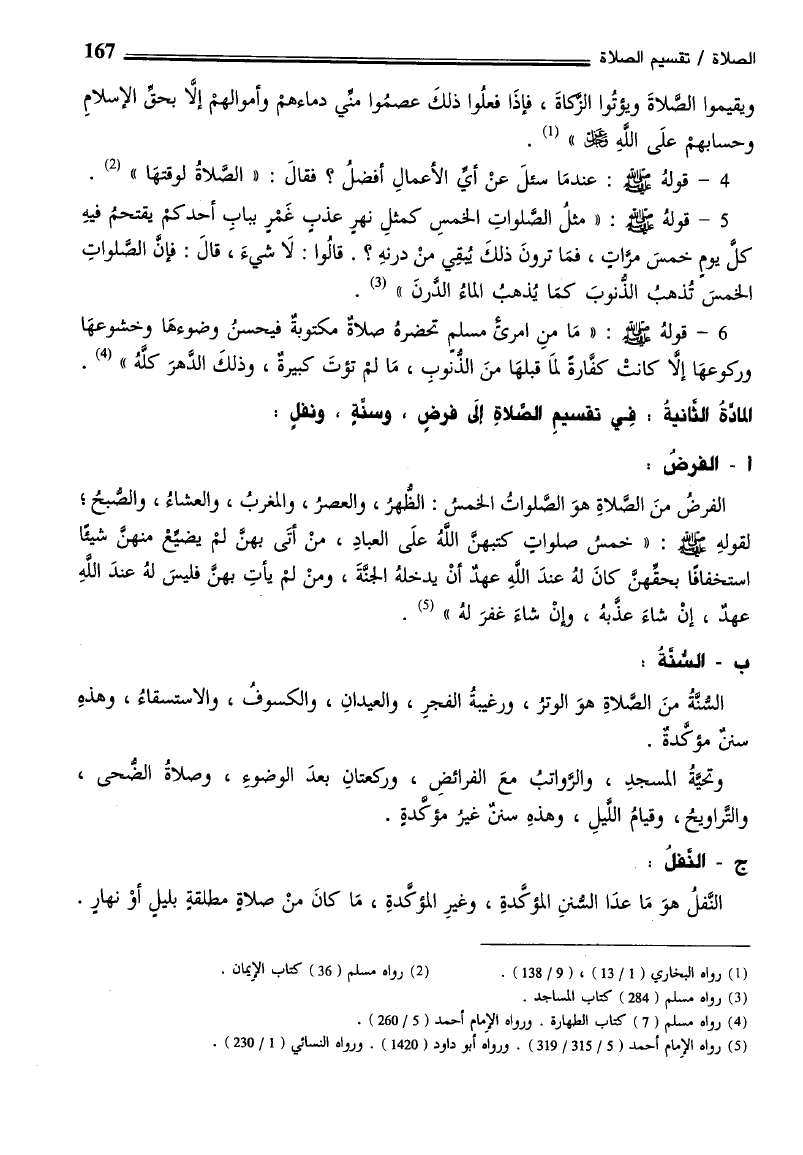 الصلاة / تقسيم الصلاة 167
ويقيموا الصَّلاةَ ويؤتُوا الزَّكاةَ ، فإذَا فعلُوا ذلكَ عصمُوا منِّي دماءهمْ وأموالهمْ إلَّا بحقِّ الإسلامِ
وحسابهمْ علَى اللَّهِ ﷺ » (1) .
4 - قولهُ ﷺ : عندمَا سئلَ عنْ أيِّ الأعمالِ أفضلُ ؟ فقالَ : « الصَّلاةُ لوقتهَا » (2) .
5 - قولهُ ﷺ : « مثلُ الصَّلواتِ الخمسِ كمثلِ نهرٍ عذبٍ غَمْرٍ ببابِ أحدكمْ يقتحمُ فيهِ
كلَّ يومٍ خمسَ مرَّاتٍ ، فمَا ترونَ ذلكَ يُبقِي منْ درنهِ ؟ . قالُوا : لَا شيءَ ، قالَ : فإنَّ الصَّلواتِ
الخمسَ تُذهبُ الذُّنوبَ كمَا يُذهبُ الماءُ الدَّرنَ » (3) .
6 - قولهُ ﷺ : « مَا منِ امرئٍ مسلمٍ تحضرهُ صلاةٌ مكتوبةٌ فيحسنُ وضوءهَا وخشوعهَا
وركوعهَا إلَّا كانتْ كفَّارةً لمَا قبلهَا منَ الذُّنوبِ ، مَا لمْ تؤتَ كبيرةٌ ، وذلكَ الدَّهرَ كلَّهُ » (4) .
المادَّةُ الثَّانيةُ : فِي تقسيمِ الصَّلاةِ إلَى فرضٍ ، وسنَّةٍ ، ونفلٍ :
ا - الفرضُ :
الفرضُ منَ الصَّلاةِ هوَ الصَّلواتُ الخمسُ : الظُّهرُ ، والعصرُ ، والمغربُ ، والعشاءُ ، والصُّبحُ ؛
لقولهِ ﷺ : « خمسُ صلواتٍ كتبهنَّ اللَّهُ علَى العبادِ ، منْ أتَى بهنَّ لمْ يضيِّعْ منهنَّ شيئًا
استخفافًا بحقِّهنَّ كانَ لهُ عندَ اللَّهِ عهدٌ أنْ يدخلهُ الجنَّةَ ، ومنْ لمْ يأتِ بهنَّ فليسَ لهُ عندَ اللَّهِ
عهدٌ ، إنْ شاءَ عذَّبهُ ، وإنْ شاءَ غفرَ لهُ » (5) .
ب - السُّنَّةُ :
السُّنَّةُ منَ الصَّلاةِ هوَ الوترُ ، ورغيبةُ الفجرِ ، والعيدانِ ، والكسوفُ ، والاستسقاءُ ، وهذهِ
سننٌ مؤكَّدةٌ .
وتحيَّةُ المسجدِ ، والرَّواتبُ معَ الفرائضِ ، وركعتانِ بعدَ الوضوءِ ، وصلاةُ الضُّحى ،
والتَّراويحُ ، وقيامُ اللَّيلِ ، وهذهِ سننٌ غيرُ مؤكَّدةٍ .
ج - النَّفلُ :
النَّفلُ هوَ مَا عدَا السُّننِ المؤكَّدةِ ، وغيرِ المؤكَّدةِ ، مَا كانَ منْ صلاةٍ مطلقةٍ بليلٍ أوْ نهارٍ .
(1) رواه البخاري ( 1 / 13 ) ، ( 9 / 138 ) . (2) رواه مسلم ( 36 ) كتاب الإيمان .
(3) رواه مسلم ( 284 ) كتاب المساجد .
(4) رواه مسلم ( 7 ) كتاب الطهارة . ورواه الإمام أحمد ( 5 / 260 ) .
(5) رواه الإمام أحمد ( 5 / 315 / 319 ) . ورواه أبو داود ( 1420 ) . ورواه النسائي ( 1 / 230 ) .